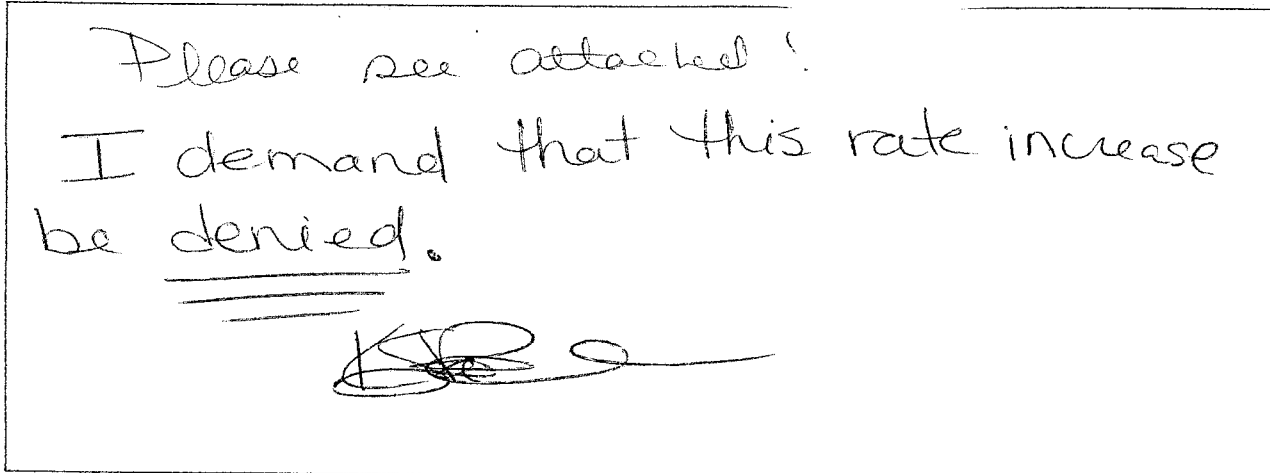 Please see attached!
I demand that this rate increase
be denied.